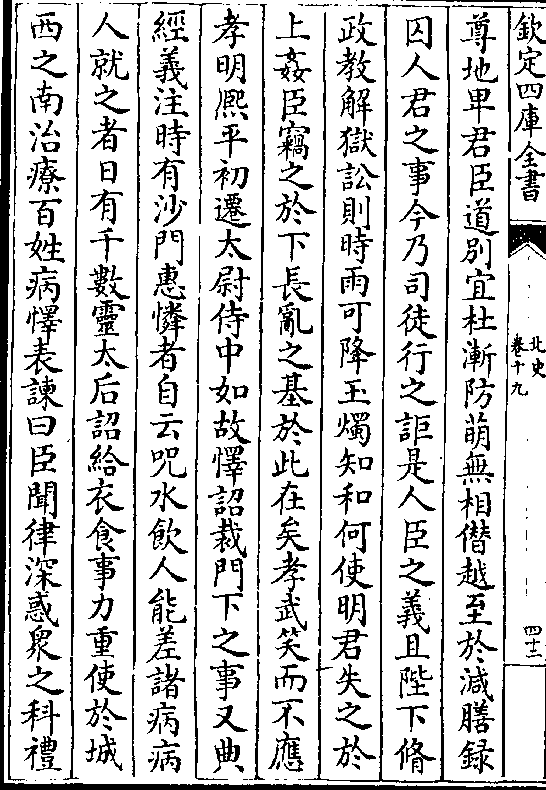 欽定四庫全書
北史
卷十九
四十二
尊地卑君臣道别宜杜漸防萌無相僭越至於減膳録
囚人君之事今乃司徒行之詎是人臣之義且陛下脩
政教解獄訟則時雨可降玉燭知和何使明君失之於
上姦臣竊之於下長亂之基於此在矣孝武笑而不應
孝明熈平初遷太尉侍中如故懌詔裁門下之事又典
經義注時有沙門惠憐者自云呪水飲人能差諸病病
人就之者日有千數靈太后詔給衣食事力重使於城
西之南治療百姓病懌表諫曰臣聞律深惑衆之科禮